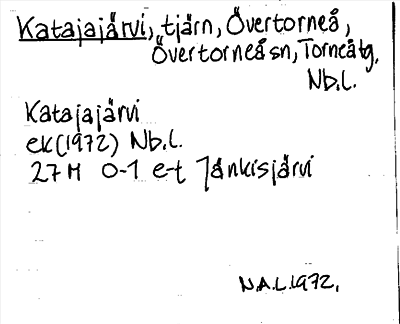 Katajajärvi, tjärn, Övertorneå,
Övertorneå sn, Torneå tg,
Nb.l.
Katajajärvi
ek(1972) Nb.l.
27M 0-1 e-t Jänkisjärvi
N.A.L.1972.